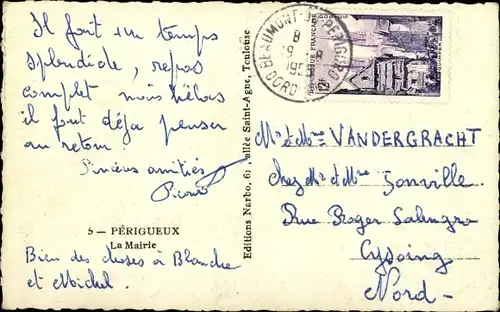 Il fait un temps
splendide, repos
complet mais hélas
il faut déjà penser
au retour.
Sincères amitiés
5 — PÉRIGUEUX
La Mairie
Bien des choses à Blanche
et Michel.
Editions Narbo, 61, allée Saint-Agne, Toulouse
BEAUMONT-DU-PERIGORD
8
19
195
DORD
REPUBLIQUE FRANÇAISE
Mr et Mme VANDERGRACHT
chez Mr et Mme Jonville
Rue Roger Salengro
Cysoing
Nord-